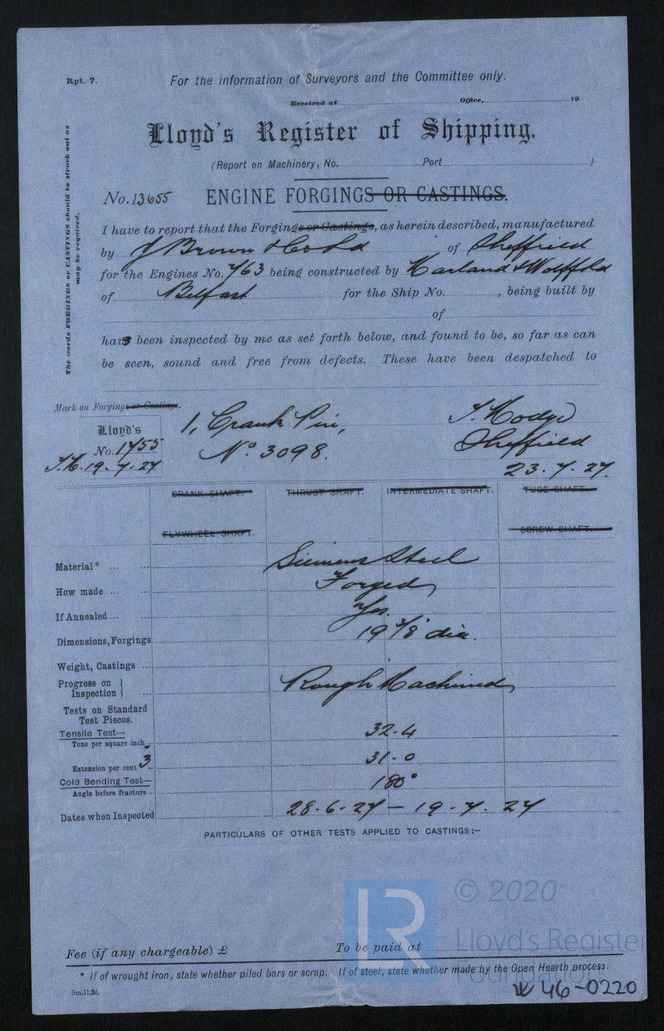 Rpt. 7.
For the information of Surveyors and the Committee only.
Received at Office, 19
Lloyd's Register of Shipping.
(Report on Machinery, No. Port )
No. 13655 ENGINE FORGINGS OR CASTINGS.
The words FORGINGS or CASTINGS should be struck out as
may be required.
I have to report that the Forgings or Castings, as herein described, manufactured
by J Brown & Co Ld of Sheffield
for the Engines No. 763 being constructed by Harland & Wolff Ld
of Belfast for the Ship No. , being built by
of
have been inspected by me as set forth below, and found to be, so far as can
be seen, sound and free from defects. These have been despatched to
Mark on Forgings or Castings.
Lloyd's
No. 1755
J.H. 19.7.27
1, Crank Pin,
No. 3098.
Sheffield
23.7.27.
CRANK SHAFT. THRUST SHAFT. INTERMEDIATE SHAFT. TUBE SHAFT.
FLYWHEEL SHAFT. SCREW SHAFT.
Material* ... ... Siemens Steel
How made ... ... Forged
If Annealed ... ... Yes.
Dimensions, Forgings 19 3/8 dia.
Weight, Castings ...
Progress on Inspection } ... Rough Machined
Tests on Standard
Test Pieces.
Tensile Test—
Tons per square inch 32.4
Extension per cent 3" 31.0
Cold Bending Test—
Angle before fracture 180°
Dates when Inspected 28-6-27 — 19-7-27
PARTICULARS OF OTHER TESTS APPLIED TO CASTINGS:—
© 2020
LR
Lloyd's Register
Foundation
Fee (if any chargeable) £ To be paid at
* If of wrought iron, state whether piled bars or scrap. If of steel, state whether made by the Open Hearth process.
5m.11.26.
W46-0220